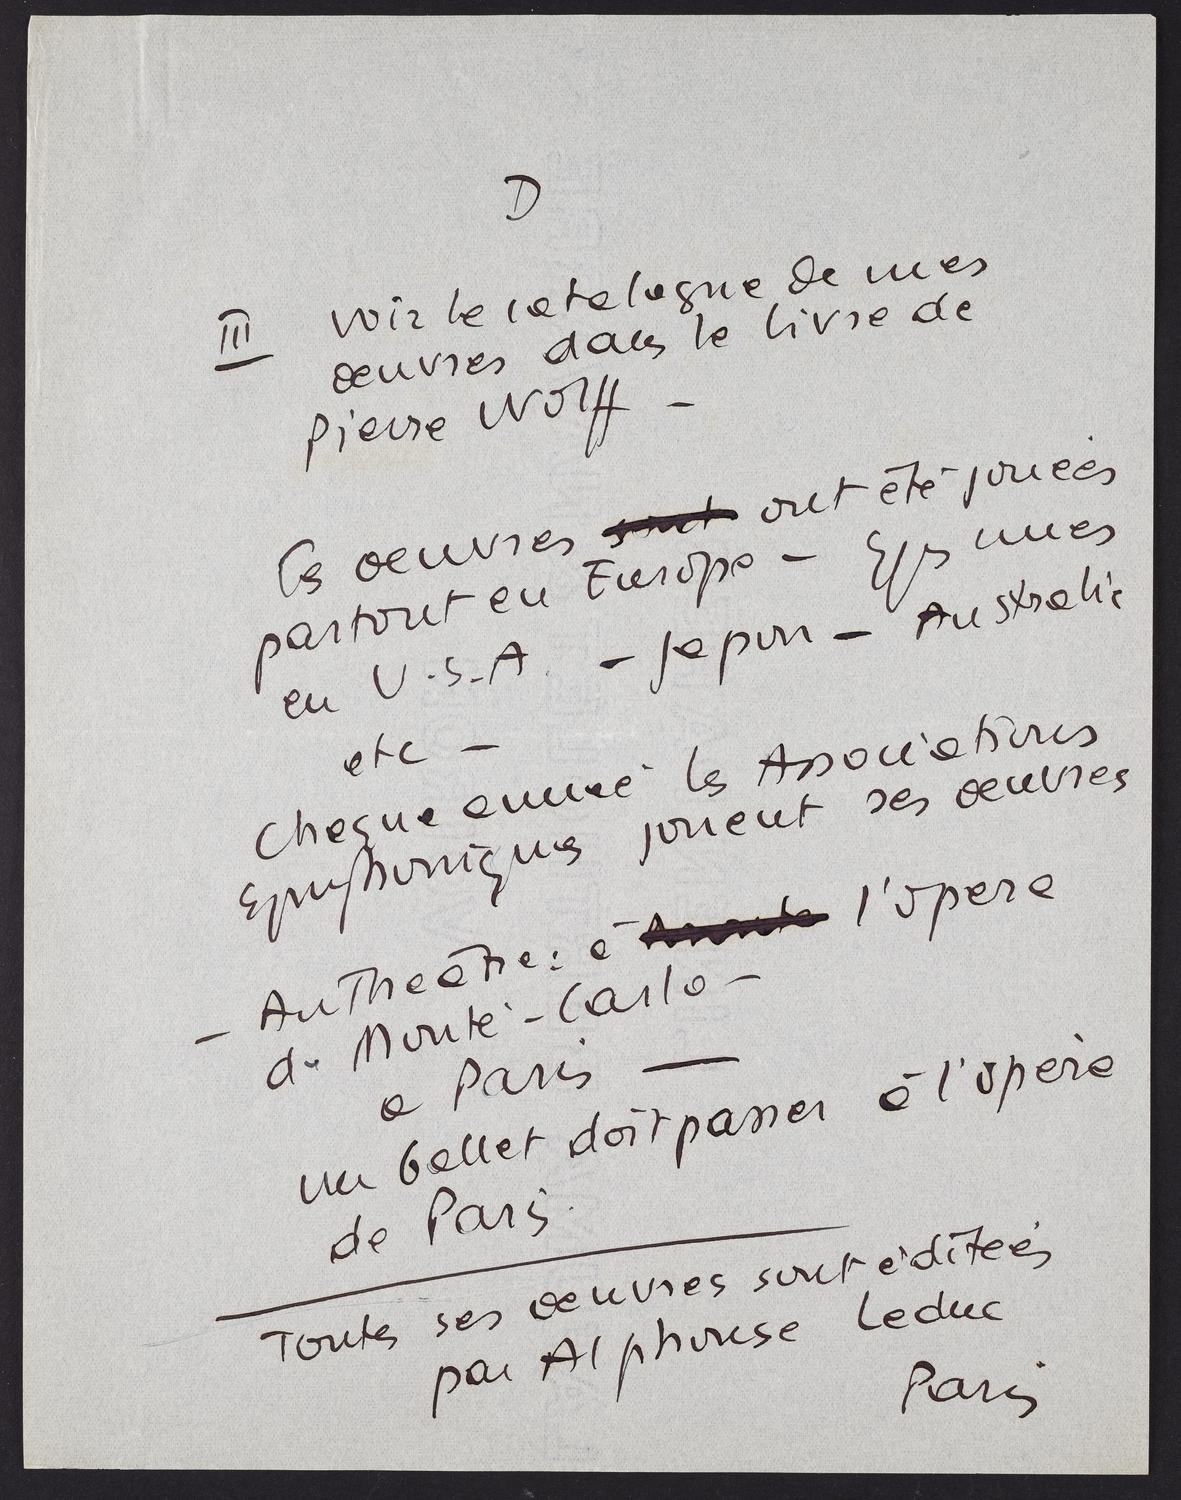 D
III voir le catalogue de mes
œuvres dans le livre de
Pierre Wolff –
les œuvres sont ont été jouées
partout en Europe –
en U.S.A. – Japon – Australie
etc –
Chaque année les Associations
symphoniques jouent ses œuvres
– Au Theâtre : à l'opera
de Monté-Carlo –
a Paris —
un ballet doit passer à l'opéra
de Paris.
Toutes ses œuvres sont éditées
par Alphonse Leduc
Paris